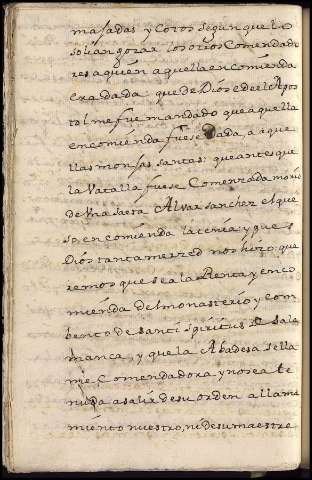 majadas y Cotos segun que lo
solian gozar los otros Comendado
res a quien aquella encomienda
era dada que de Dios e de el Apos
tol me fue mandado que aquella
encomienda fuese dada, a aque
llas monjas santas: que antes que
la Vatalla fuese Comenzada morio
de una saeta Alvar sanchez el que
en encomienda la tenia: y que s
Dios tanta merzed nos hizo: que
remos que sea la Renta, y enco
mienda del monasterio, y com
bento de santi spiritus de Sala
manca, y que la Abadesa se lla
me, Comendadora, y no sea te
nuda a salir de su orden a llama
miento nuestro, ni de su maestre